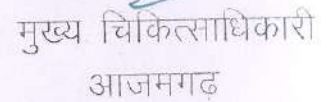 मुख्य चिकित्साधिकारी
आजमगढ़